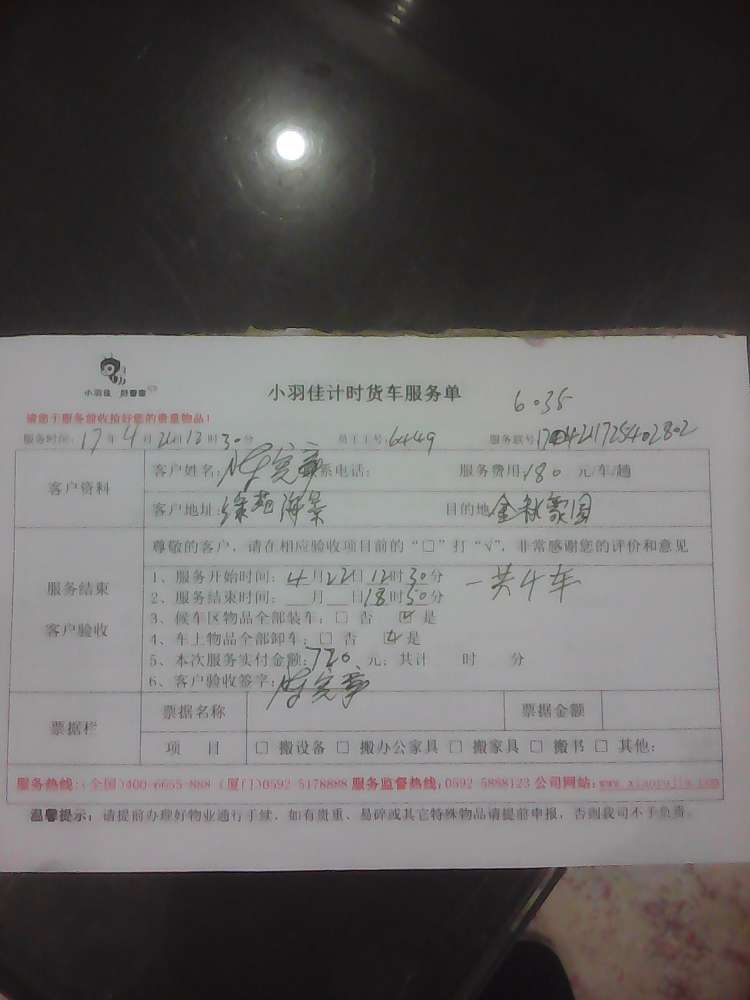 小羽佳
小羽佳计时货车服务单
6:35
请您于服务前收拾好您的贵重物品!
服务时间: 17年4月22日12时30分 员工工号: 6449 服务联号
客户资料
客户姓名: 系电话: 服务费用: 180 元/车/趟
客户地址: 海景 目的地 金秋豪园
尊敬的客户, 请在相应验收项目前的“□”打“√”, 非常感谢您的评价和意见
服务结束
客户验收
1、服务开始时间: 4月22日12时30分 一共4车
2、服务结束时间: __月__日18时50分
3、候车区物品全部装车: □ 否 ☑ 是
4、车上物品全部卸车: □ 否 ☑ 是
5、本次服务实付金额: 720 元; 共计 时 分
6、客户验收签字:
票据栏
票据名称 票据金额
项 目 □ 搬设备 □ 搬办公家具 □ 搬家具 □ 搬书 □ 其他:
服务热线: (全国)400-6655-888 (厦门)0592-5178888 服务监督热线: 0592-5888123 公司网站: www.xiaoyujia.com
温馨提示: 请提前办理好物业通行手续, 如有贵重、易碎或其它特殊物品请提前申报, 否则我司不予负责。